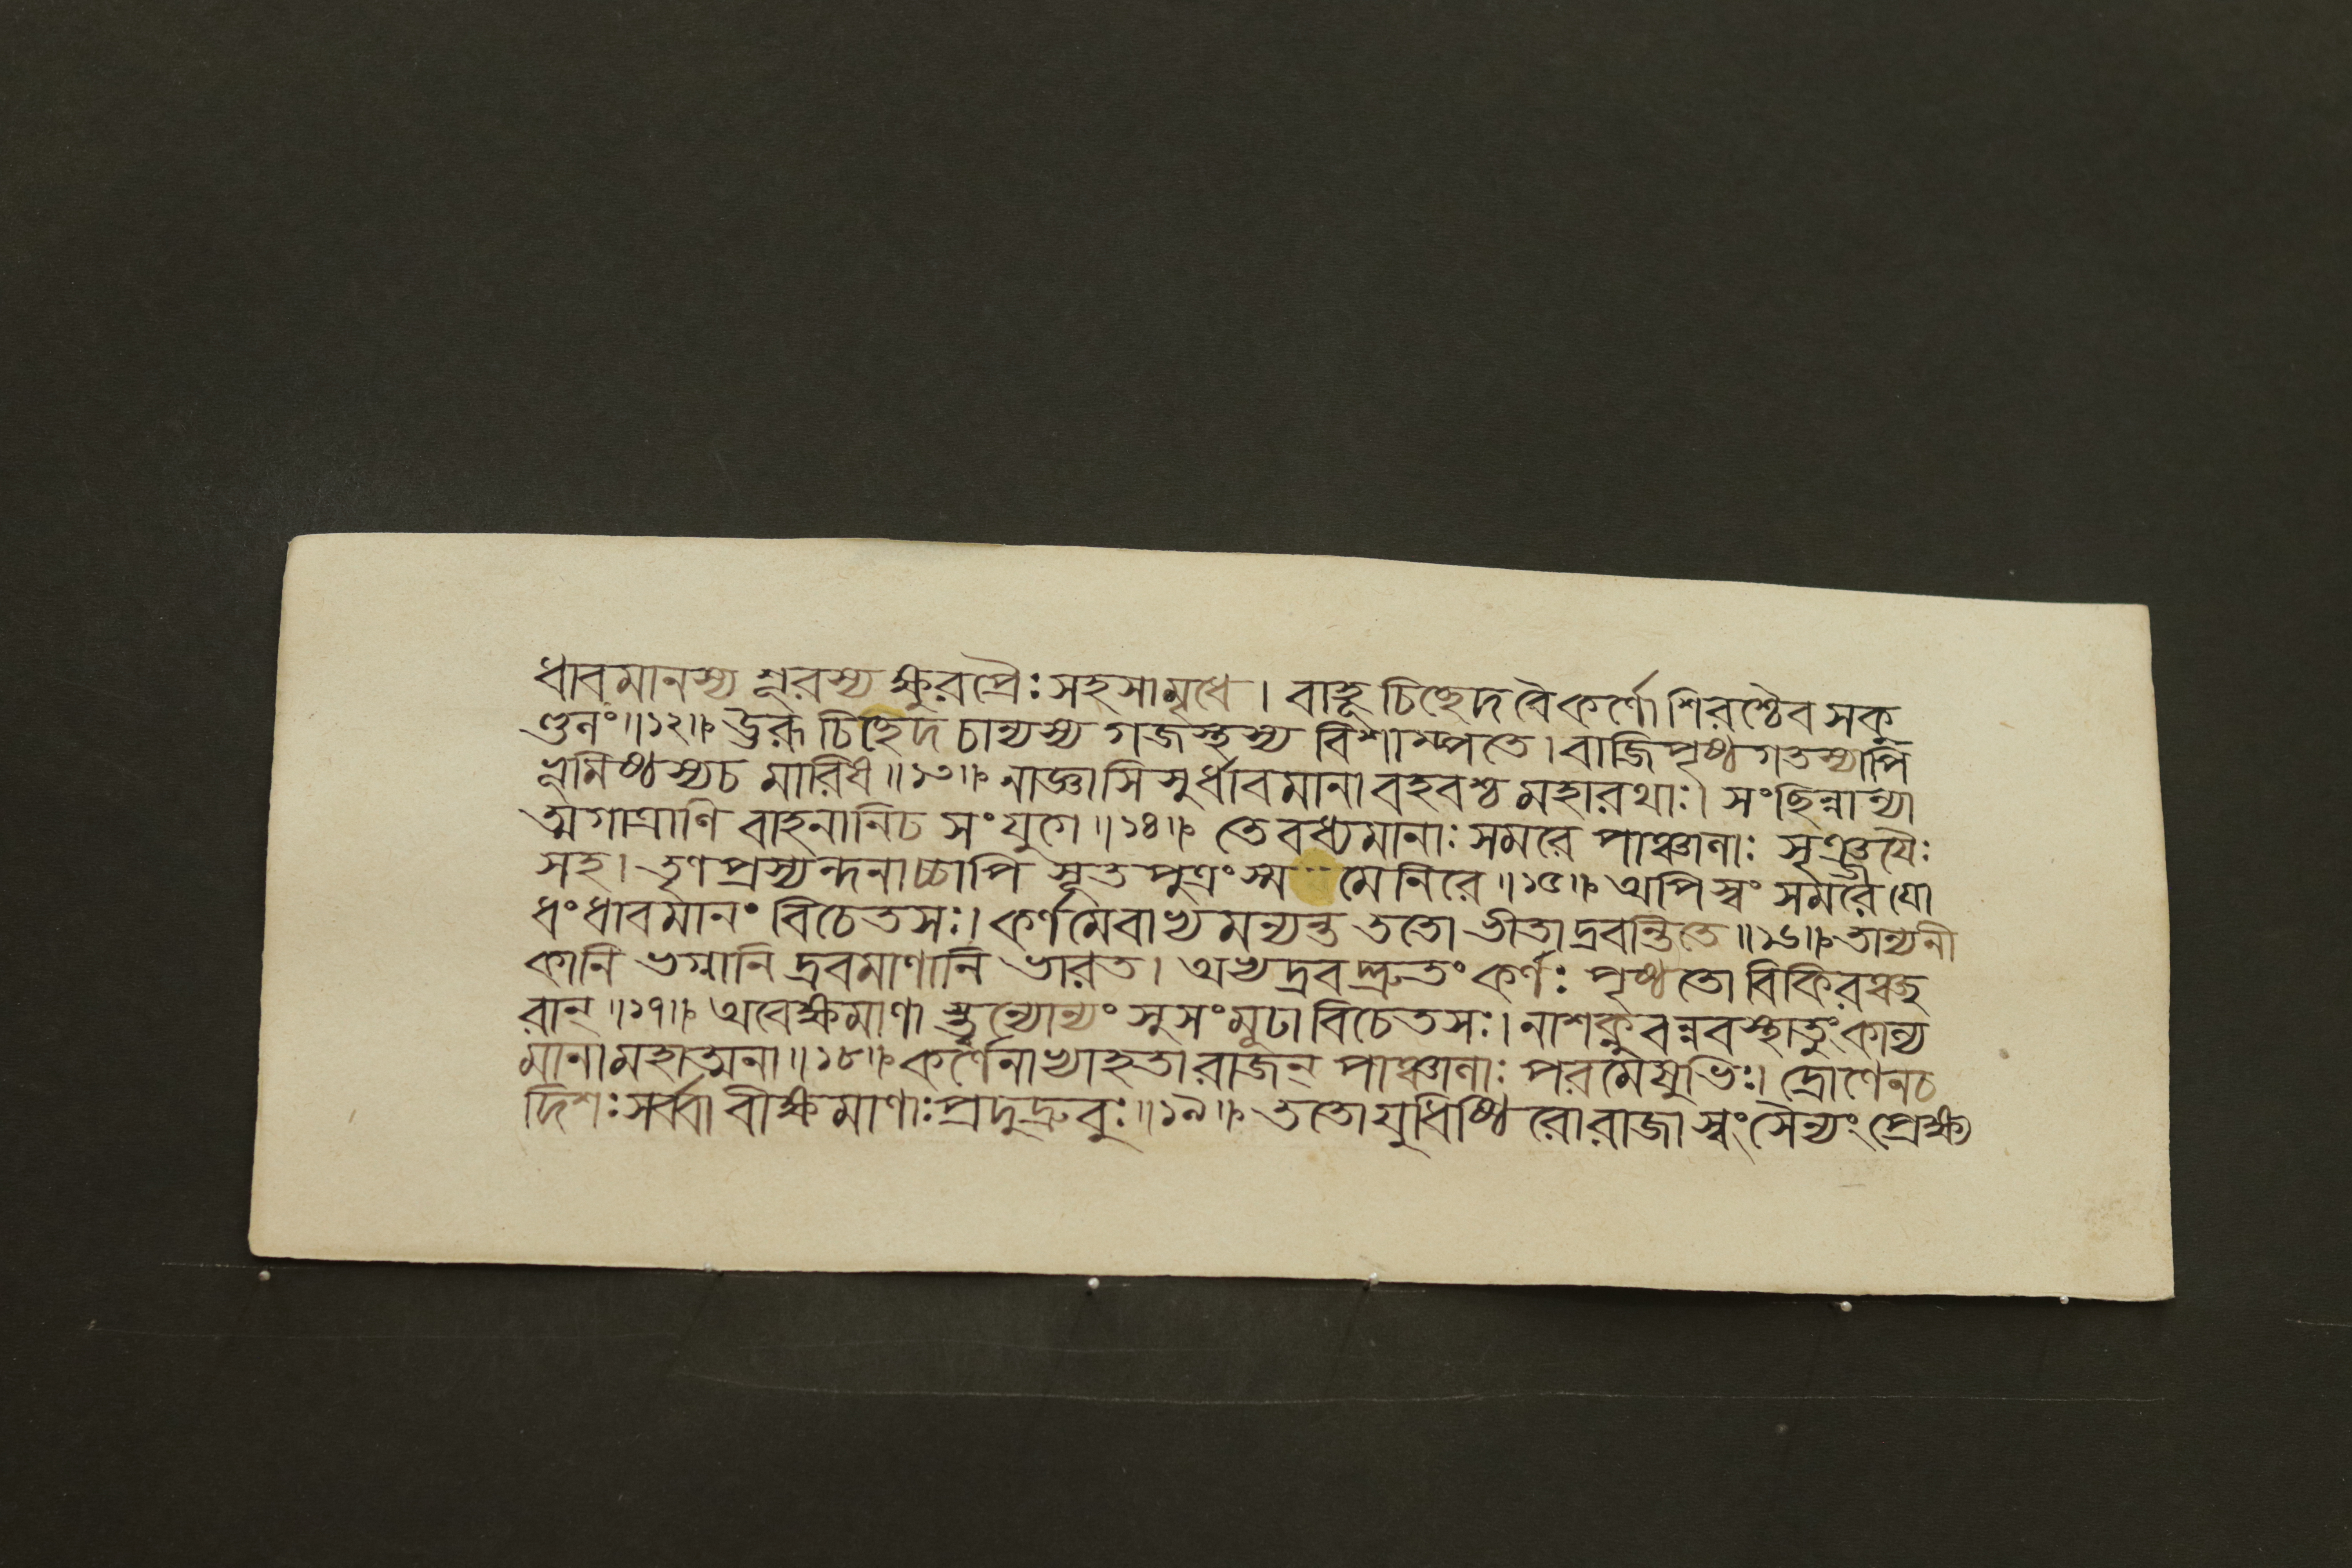 ধাবমানস্য শূরস্য ক্ষুরপ্রৈঃ সহসামৃধে । বাহূ চিচ্ছেদ বৈকর্ণো শিরশ্চৈব সকু
ণ্ডলং ॥১২॥ ঊরূ চিচ্ছেদ চান্যস্য গজস্থস্য বিশাম্পতে । বাজিপৃষ্ঠ গতস্যাপি
ভূমিষ্ঠস্যচ মারিষ ॥১৩॥ নাজ্ঞাসিসুর্ধাবমানা বহবশ্চ মহারথাঃ । সংছিন্নান্যা
ত্মগাত্রাণি বাহনানিচ সংযুগে ॥১৪॥ তে বধ্যমানাঃ সমরে পাঞ্চালাঃ সৃঞ্জয়ৈঃ
সহ । তৃণপ্রস্যন্দনাচ্চাপি সূতপুত্রং স্ম মেনিরে ॥১৫॥ অপিস্বং সমরে যো
ধং ধাবমানং বিচেতসঃ । কর্ণমেবাভ্যমন্যন্ত ততো ভীতা দ্রবন্তিতে ॥১৬॥ তান্যনী
কানি ভগ্নানি দ্রবমাণানি ভারত । অভ্যদ্রবদ্দ্রুতং কর্ণঃ পৃষ্ঠতো বিকিরঞ্ছ
রান্ ॥১৭॥ অবেক্ষমাণা স্তুন্যোন্যং সুসংমূঢা বিচেতসঃ । নাশক্নুবন্নবস্থাতুং কাল্য
মানা মহাত্মনা ॥১৮॥ কর্ণেনাভ্যাহতা রাজন্ পাঞ্চালাঃ পরমেষুভিঃ । দ্রোণেনচ
দিশঃ সর্ব্বা বীক্ষমাণাঃ প্রদুদ্রুবুঃ ॥১৯॥ ততো যুধিষ্ঠিরো রাজা স্বং সৈন্যং প্রেক্ষ্য